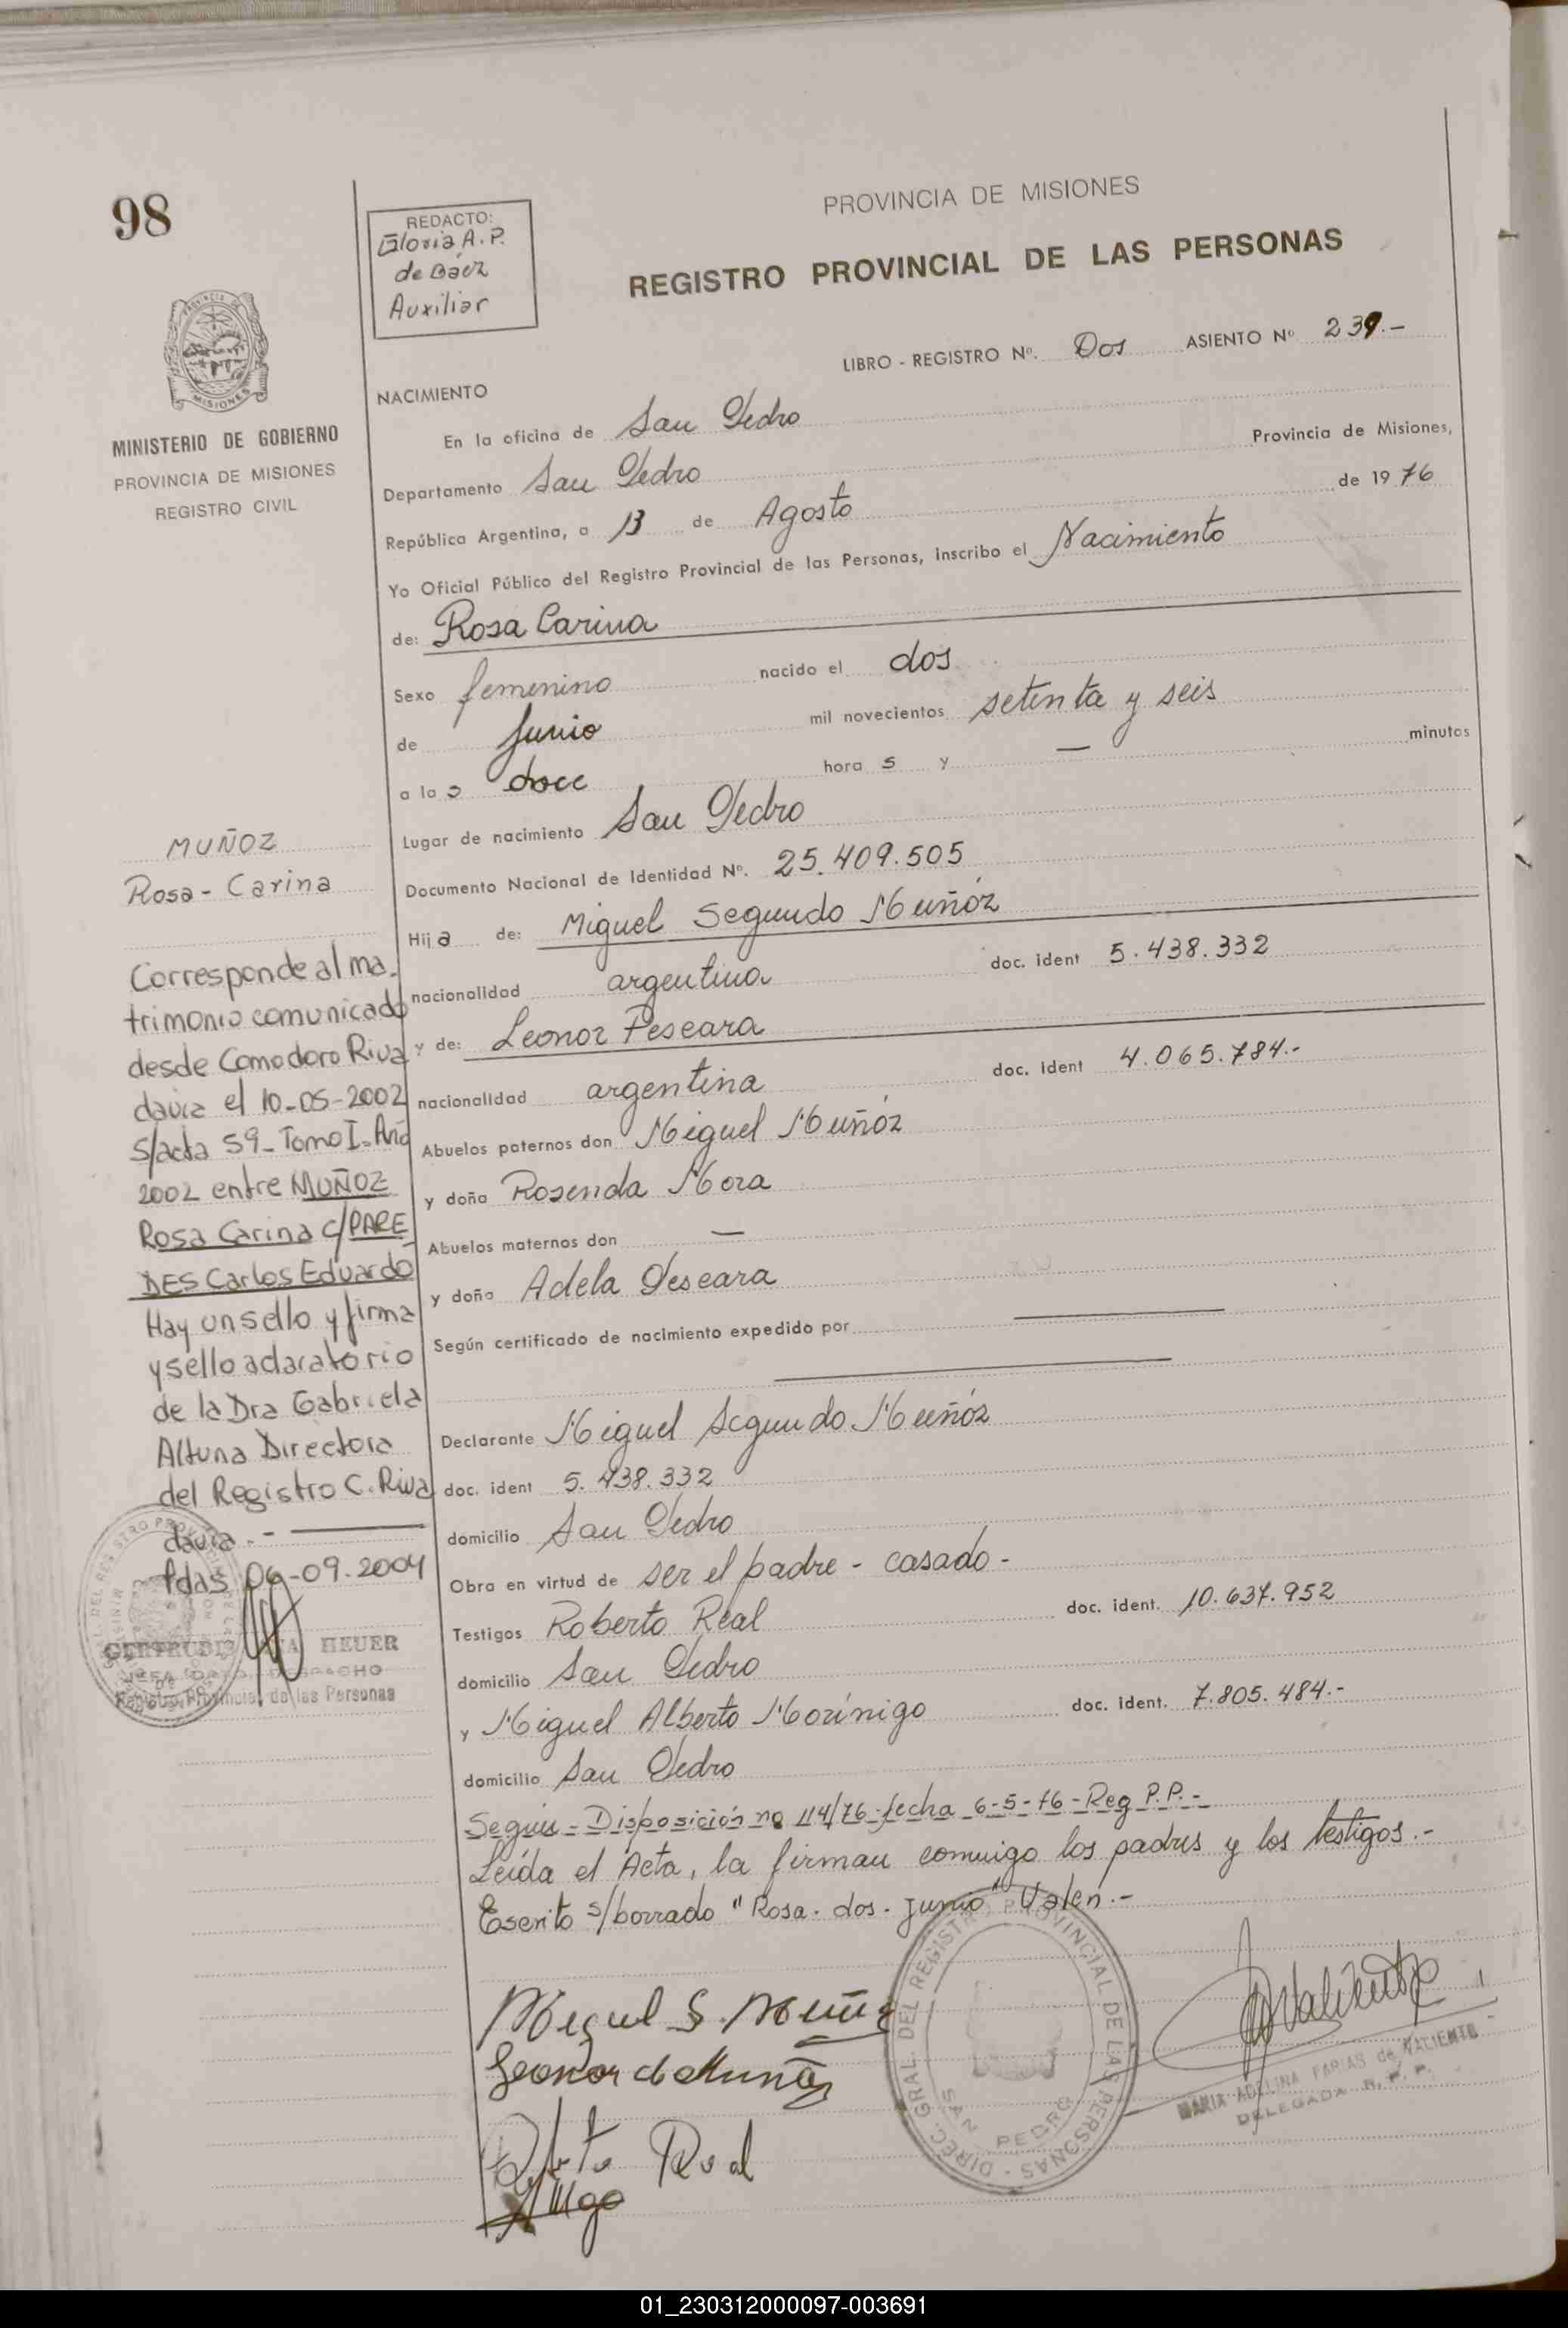 98
REDACTO:
Gloria A. P.
de Báez
Auxiliar
PROVINCIA DE MISIONES
REGISTRO PROVINCIAL DE LAS PERSONAS
LIBRO - REGISTRO Nº. Dos ASIENTO Nº 239.-
MISIONES
MINISTERIO DE GOBIERNO
PROVINCIA DE MISIONES
REGISTRO CIVIL
NACIMIENTO
En la oficina de San Pedro
Departamento San Pedro Provincia de Misiones,
República Argentina, a 13 de Agosto de 1976
Yo Oficial Público del Registro Provincial de las Personas, inscribo el Nacimiento
de: Rosa Carina
Sexo femenino nacido el dos
de Junio mil novecientos setenta y seis
a la s doce hora s y — minutos
Lugar de nacimiento San Pedro
Documento Nacional de Identidad Nº. 25.409.505
Hija de: Miguel Segundo Muñóz
nacionalidad argentina doc. ident 5.438.332
y de: Leonor Pescara
nacionalidad argentina doc. ident 4.065.784.-
Abuelos paternos don Miguel Muñóz
y doña Rosenda Mora
Abuelos maternos don —
y doña Adela Pescara
Según certificado de nacimiento expedido por
Declarante Miguel Segundo Muñóz
doc. ident 5.438.332
domicilio San Pedro
Obra en virtud de ser el padre - casado -
Testigos Roberto Real doc. ident. 10.637.952
domicilio San Pedro
y Miguel Alberto Morínigo doc. ident. 7.805.484.-
domicilio San Pedro
Según - Disposición nº 114/76 - fecha 6-5-76 - Reg P.P.-
Leída el Acta, la firman conmigo los padres y los testigos.-
Escrito s/borrado "Rosa. dos. junio" Valen.-
MUÑOZ
Rosa - Carina
Corresponde al ma-
trimonio comunicado
desde Comodoro Riva
davia el 10-05-2002
s/acta 59- Tomo I- Año
2002 entre MUÑOZ
Rosa Carina c/PARE
DES Carlos Eduardo
Hay un sello y firma
y sello aclaratorio
de la Dra Gabriela
Altuna Directora
del Registro C. Riva
davia.-
Pdas 06-09-2004
HEUER
Registro Provincial de las Personas
Miguel S. Muñoz
Leonor de Muñoz
Roberto Real
DIREC. GRAL. DEL REGISTRO PROVINCIAL DE LAS PERSONAS -
SAN PEDRO
MARIA ADELINA FARIAS de VALIENTE
DELEGADA R. P. P.
01_230312000097-003691